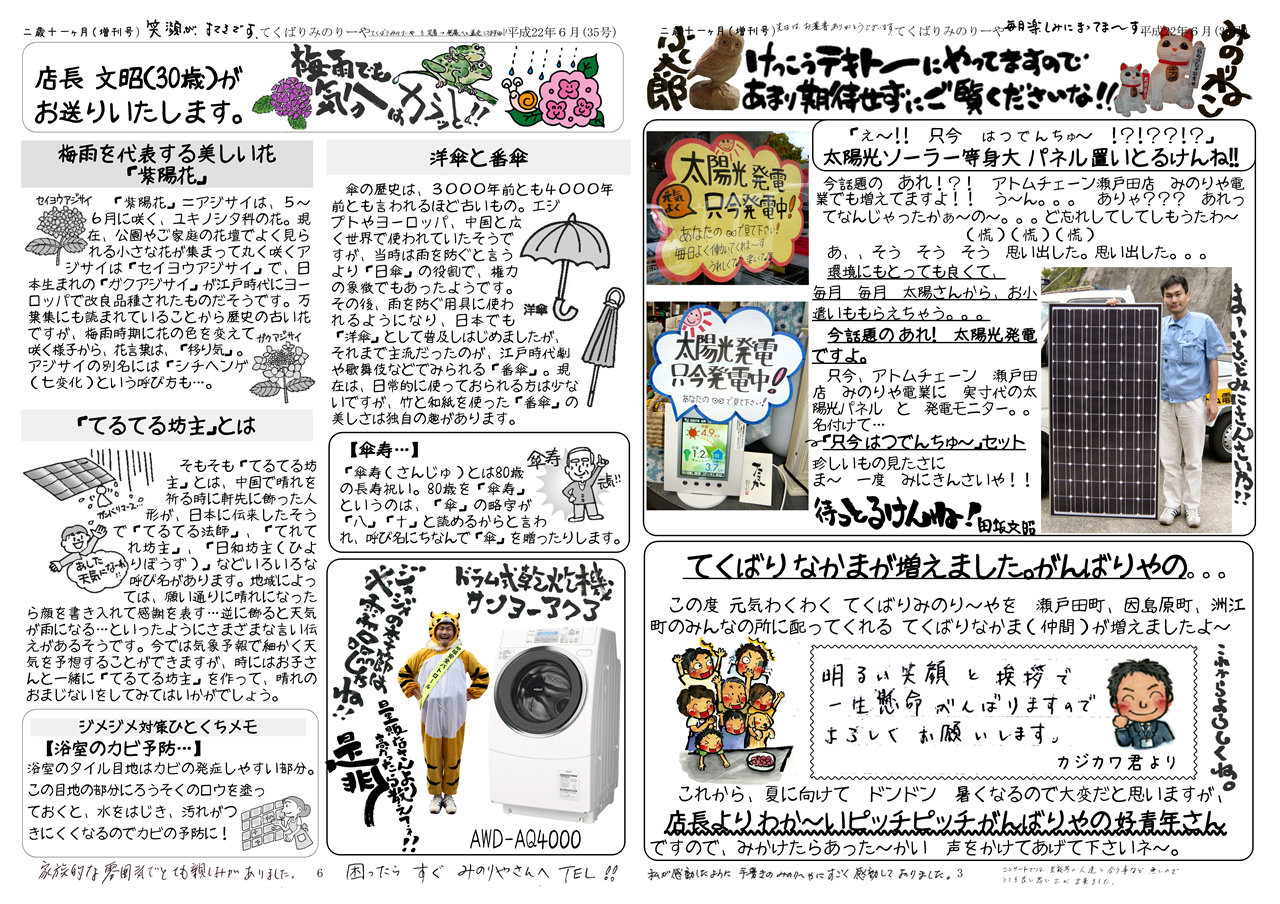 二歳十一ヶ月(増刊号) 笑顔が すてきです。てくばりみのりーや 平成22年6月(35号)
店長 文昭(30歳)が
お送りいたします。
梅雨でも
気分は カラッと!!
梅雨を代表する美しい花
『紫陽花』
セイヨウアジサイ
『紫陽花』=アジサイは、5～
6月に咲く、ユキノシタ科の花。現
在、公園やご家庭の花壇でよく見ら
れる小さな花が集まって丸く咲くア
ジサイは『セイヨウアジサイ』で、日
本生まれの『ガクアジサイ』が江戸時代にヨー
ロッパで改良品種されたものだそうです。万
葉集にも読まれていることから歴史の古い花
ですが、梅雨時期に花の色を変えて
咲く様子から、花言葉は、『移り気』。
アジサイの別名には『シチヘンゲ
(七変化)という呼び方も…。
ガクアジサイ
『てるてる坊主』とは
そもそも『てるてる坊
主』とは、中国で晴れを
祈る時に軒先に飾った人
形が、日本に伝来したそう
で『てるてる法師』、『てれて
れ坊主』、『日和坊主(ひよ
りぼうず)』などいろいろな
呼び名があります。地域によっ
ては、願い通りに晴れになった
ら顔を書き入れて感謝を表す…逆に飾ると天気
が雨になる…といったようにさまざまな言い伝
えがあるそうです。今では気象予報で細かく天
気を予想することができますが、時にはお子さ
んと一緒に『てるてる坊主』を作って、晴れの
おまじないをしてみてはいかがでしょう。
あした
天気になぁれ
ジメジメ対策ひとくちメモ
【浴室のカビ予防…】
浴室のタイル目地はカビの発症しやすい部分。
この目地の部分にろうそくのロウを塗っ
ておくと、水をはじき、汚れがつ
きにくくなるのでカビの予防に!
洋傘と番傘
傘の歴史は、3000年前とも4000年
前とも言われるほど古いもの。エジ
プトやヨーロッパ、中国と広
く世界で使われていたそうで
すが、当時は雨を防ぐと言う
より『日傘』の役割で、権力
の象徴でもあったようです。
その後、雨を防ぐ用具に使わ
れるようになり、日本でも
『洋傘』として普及しはじめましたが、
それまで主流だったのが、江戸時代劇
や歌舞伎などでみられる『番傘』。現
在は、日常的に使っておられる方は少な
いですが、竹と和紙を使った『番傘』の
美しさは独自の趣があります。
洋傘
【傘寿…】
『傘寿(さんじゅ)とは80歳
の長寿祝い。80歳を『傘寿』
というのは、『傘』の略字が
『八』『十』と読めるからと言わ
れ、呼び名にちなんで『傘』を贈ったりします。
傘寿
元気!!
ドラム式乾燥機
サンヨーアクア
是非
AWD-AQ4000
家族的な雰囲気でとても親しみがありました。
6
困ったら すぐ みのりやさんへ TEL!!
二歳十一ヶ月(増刊号) 先日は、お葉書ありがとうございます てくばりみのりーや 毎月楽しみにまってま～す 平成22年6月
ふく太郎
けっこうテキトーにやってますので
あまり期待せずにご覧くださいな!!
みのりねこ
『え～!! 只今 はつでんちゅ～ !?!??!?』
太陽光ソーラー等身大 パネル置いとるけんね!!
太陽光発電
只今発電中!
元気よく
あなたの目で見て下さい!
毎日よく働いてくれま～す
太陽光発電
只今発電中!
あなたの目で見て下さい!
4.9
1.2
3.7
今話題の あれ!?! アトムチェーン瀬戸田店 みのりや電
業でも増えてますよ!! う～ん。。。 ありゃ??? あれっ
てなんじゃったかぁ～の～。。。ど忘れしてしてしもうたわ～
(慌)(慌)(慌)
あ、、そう そう そう 思い出した。思い出した。。。
環境にもとっても良くて、
毎月 毎月 太陽さんから、お小
遣いももらえちゃう。。。
今話題のあれ! 太陽光発電
ですよ。
只今、アトムチェーン 瀬戸田
店 みのりや電業に 実寸代の太
陽光パネル と 発電モニター。。
名付けて…
『只今はつでんちゅ～』セット
珍しいもの見たさに
ま～ 一度 みにきんさいや!!
待っとるけんね! 田坂文昭
まーいちどみにきんさいね!!
てくばりなかまが増えました。がんばりやの。。。
この度 元気わくわく てくばりみのり～やを 瀬戸田町、因島原町、洲江
町のみんなの所に配ってくれる てくばりなかま(仲間)が増えましたよ～
明るい笑顔と挨拶で
一生懸命がんばりますので
よろしくお願いします。
カジカワ君より
これからよろしくね。
これから、夏に向けて ドンドン 暑くなるので大変だと思いますが、
店長よりわか～いピッチピッチがんばりやの好青年さん
ですので、みかけたらあった～かい 声をかけてあげて下さいネ～。
私が感動したように 手書きのみのりーやにすごく感動してありました。
3